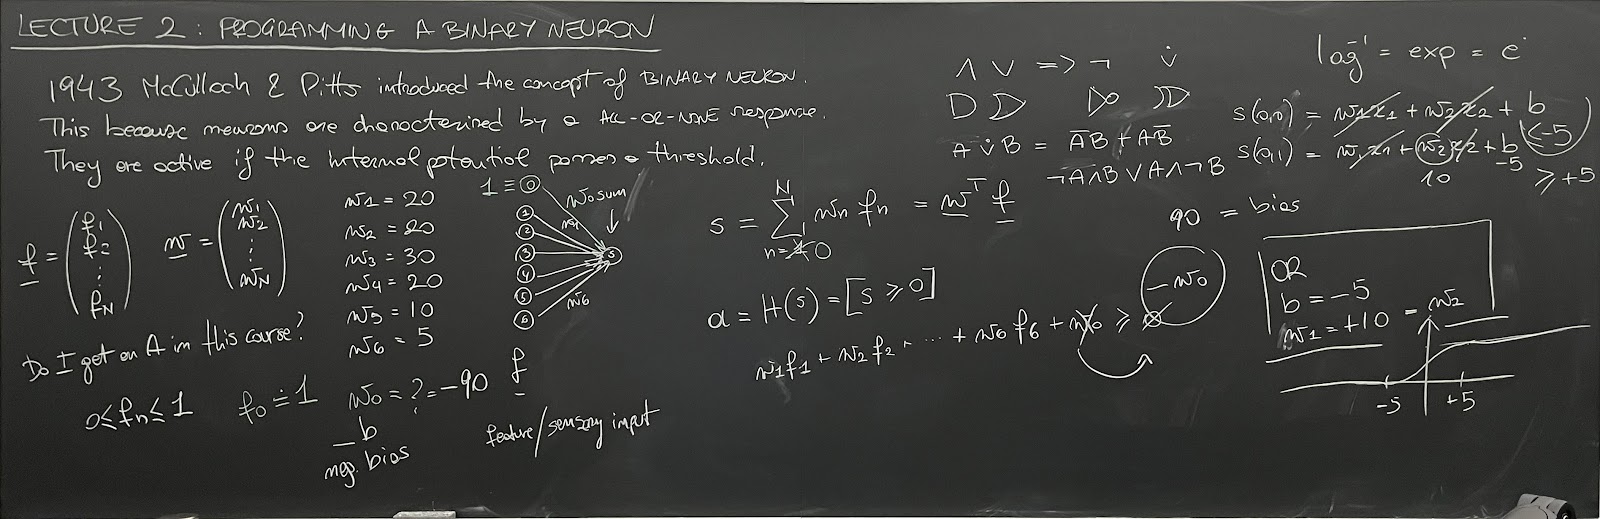 LECTURE 2 : PROGRAMMING A BINARY NEURON
1943 McCulloch & Pitts introduced the concept of BINARY NEURON.
This because neurons are characterized by a ALL-OR-NONE response.
They are active if the internal potential passes a threshold.
f = (f1 f2 ⋮ fN)
w = (w1 w2 ⋮ wN)
w1 = 20
w2 = 20
w3 = 30
w4 = 20
w5 = 10
w6 = 5
w0 = ? = -90
b
neg. bias
Do I get an A in this course?
0 ≤ fn ≤ 1
f0 ≐ 1
1 ≡ 0
1
2
3
4
5
6
w0
w1
w6
sum
s
f
feature/sensory input
s = Σ_{n=0}^{N} wn fn = w^T f
a = H(s) = [s ≥ 0]
w1f1 + w2f2 + ... + w6f6 + w0 ≥ 0
-w0
90 = bias
∧ ∨ => ¬ ∨̇
A ∨̇ B = ĀB + AB̄
¬A∧B ∨ A∧¬B
log⁻¹ = exp = e^·
s(0,0) = w1x1 + w2x2 + b
< -5
s(0,1) = w1x1 + w2x2 + b
10
-5
≥ +5
OR
b = -5
w1 = +10 = w2
-5
+5